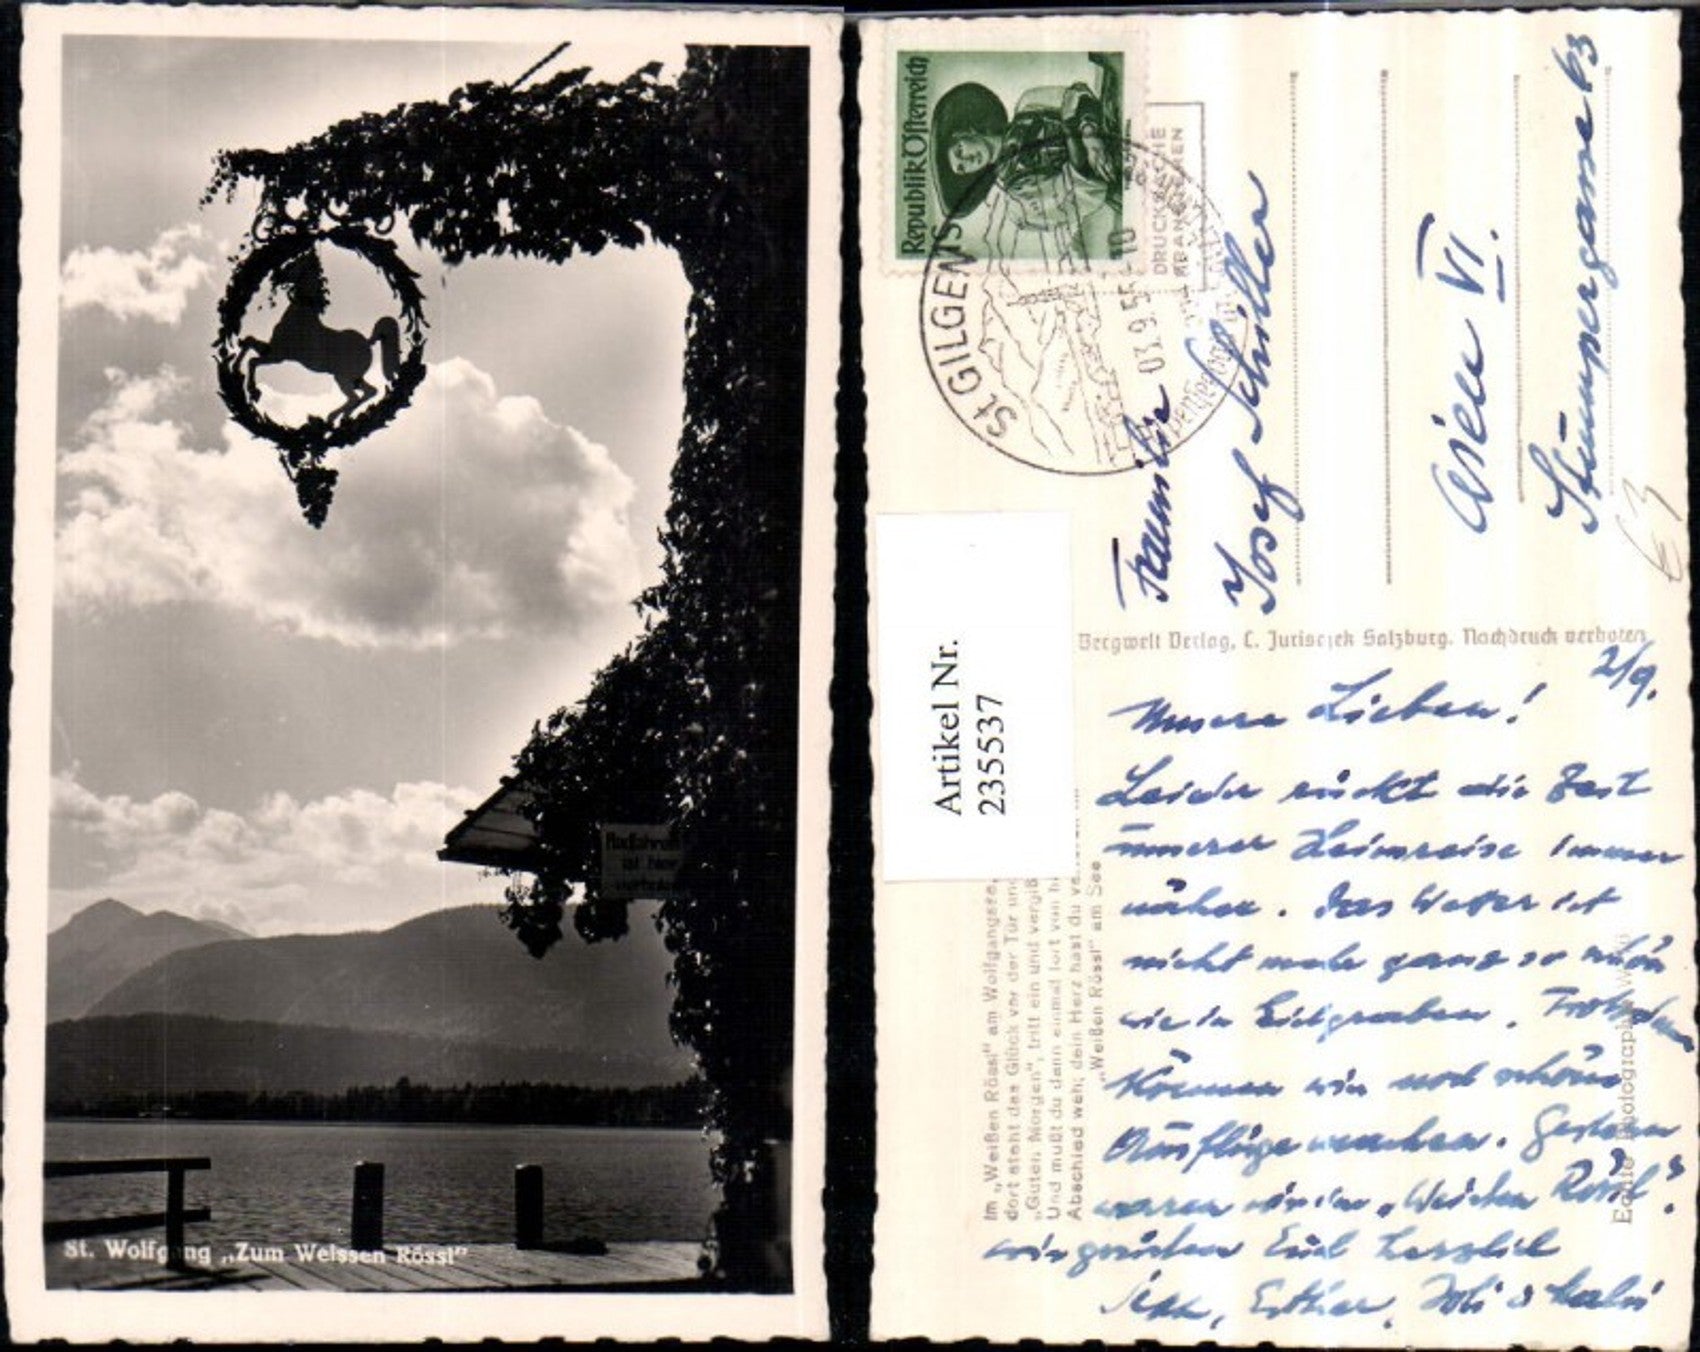 St. Wolfgang „Zum Weissen Rössl"
Radfahren
ist hier
verboten
Republik Österreich
St. GILGEN
03.9.5
10
DRUCKSACHE
Familie
Josef Schiller
Wien VI.
Stumpergasse 63
€ 3
Bergwelt Verlag, C. Jurischek Salzburg. Nachdruck verboten
Artikel Nr.
235537
Im „Weißen Rössl" am Wolfgangsee,
dort steht das Glück vor der Tür und
„Guten Morgen", tritt ein und vergiß
Und mußt du dann einmal fort von hi
Abschied weh; dein Herz hast du verloren im
„Weißen Rössl" am See
Echte Photographie
2/9.
Unsere Lieben!
Leider rückt die Zeit
unserer Heimreise immer
näher. Das Wetter ist
nicht mehr ganz so schön
wie in Eichgraben. Trotzdem
können wir noch schöne
Ausflüge machen. Gestern
waren wir im „Weißen Rössl".
wir grüßen Euch herzlich
Esther,